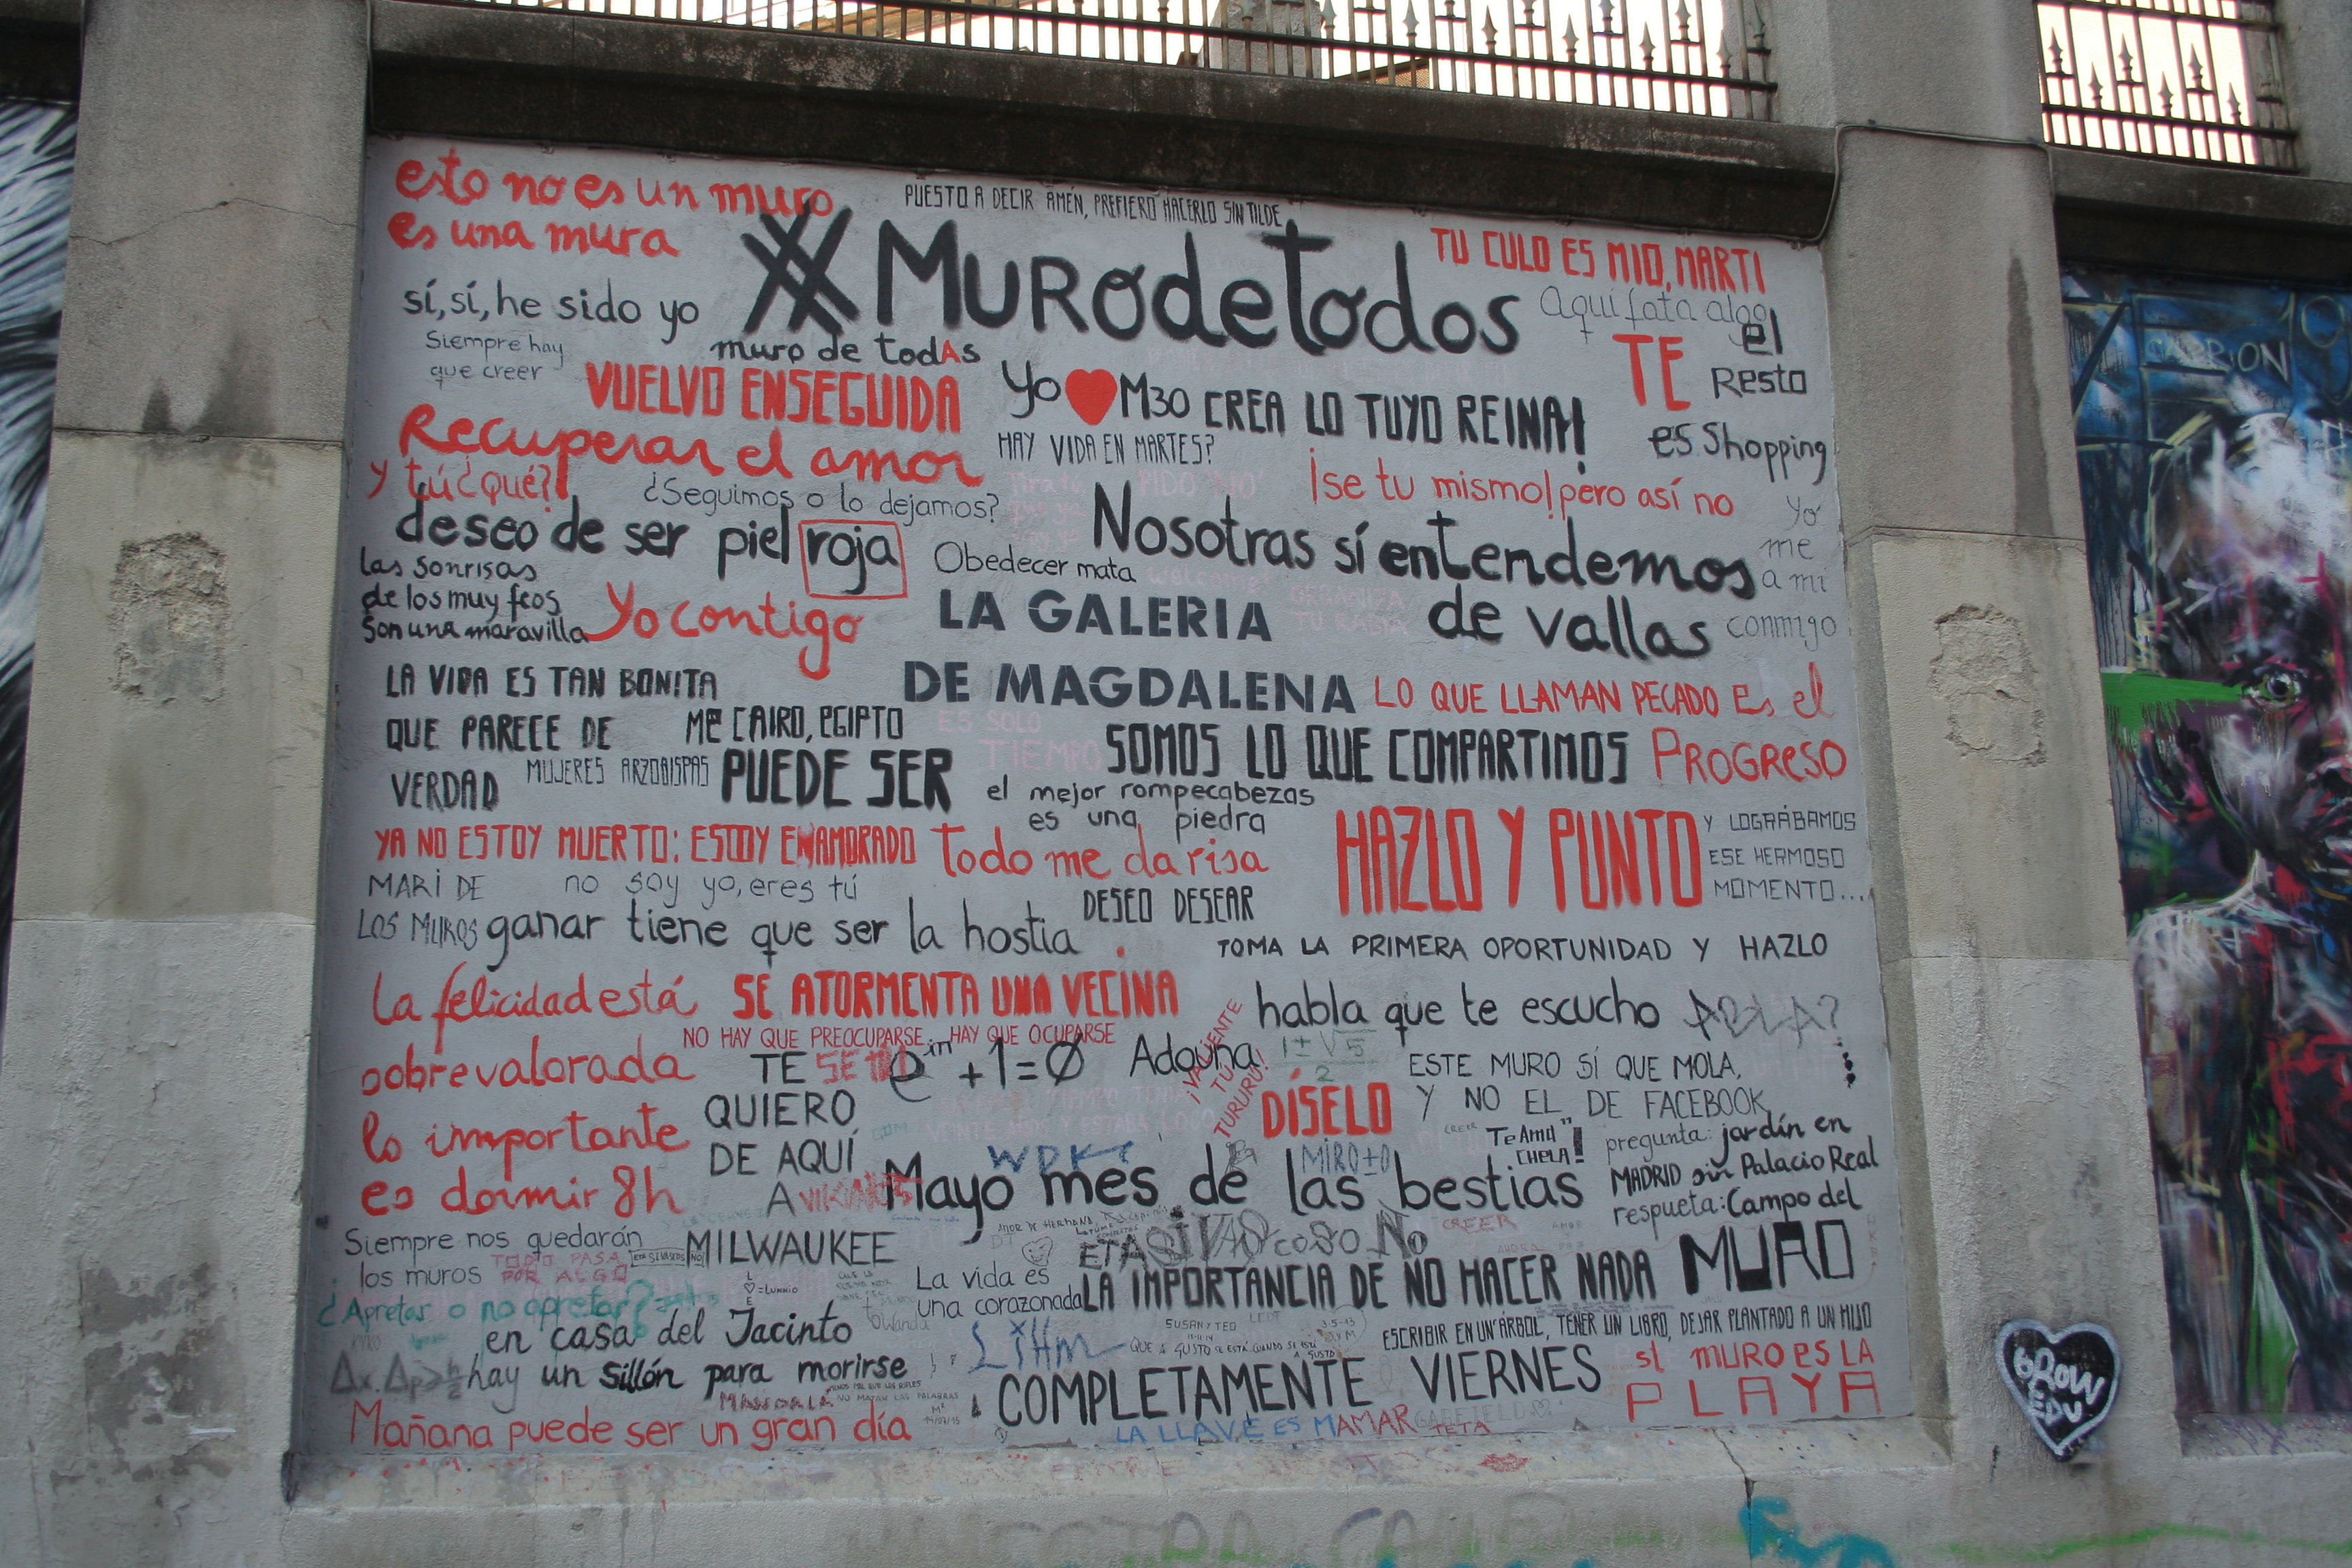 esto no es un muro
es una mura
PUESTO A DECIR AMÉN, PREFIERO HACERLO SIN TILDE
#MURodetodos
TU CULO ES MIO, MARTI
sí, sí, he sido yo
muro de todAs
Aquí fata algo
Siempre hay
que creer
VUELVO ENSEGUIDA
Yo ♥ M30
CREA LO TUYO REINA!
TE
el
Resto
es Shopping
Recuperar el amor
HAY VIDA EN MARTES?
y tú ¿qué?
¿Seguimos o lo dejamos?
PIDO 'NO'
¡se tú mismo! pero así no
deseo de ser piel roja
Obedecer mata
Nosotras sí entendemos
de vallas
yo
me
a mi
conmigo
las sonrisas
de los muy feos
son una maravilla
Yo contigo
welcome!
ORGANIZA
TU RABIA
LA GALERIA
DE MAGDALENA
LA VIDA ES TAN BONITA
QUE PARECE DE
VERDAD
ME CAIRO, EGIPTO
LO QUE LLAMAN PECADO Es el
PROGReSO
ES SOLO
TIEMPO
SOMOS LO QUE COMPARTIMOS
MUJERES ARZOBISPAS
PUEDE SER
el mejor rompecabezas
es una piedra
HAZLO Y PUNTO
Y LOGRÁBAMOS
ESE HERMOSO
MOMENTO...
YA NO ESTOY MUERTO: ESTOY ENAMORADO
Todo me da risa
MARi DE
LOS MUROS
no soy yo, eres tú
DESEO DESEAR
ganar tiene que ser la hostia
TOMA LA PRIMERA OPORTUNIDAD Y HAZLO
La felicidad está
sobrevalorada
lo importante
es dormir 8h
SE ATORMENTA UNA VECINA
habla que te escucho
NO HAY QUE PREOCUPARSE, HAY QUE OCUPARSE
TE
QUIERO
DE AQUÍ
A
MILWAUKEE
+1=0
¡VALIENTE
TÚ
TURURÚ!
1±√5
2
DÍSELO
ESTE MURO SÍ QUE MOLA,
Y NO EL DE FACEBOOK
Te Amo
CHELA!
pregunta: jardín en
MADRID sin Palacio Real
respuesta: Campo del
MURO
Mayo mes de las bestias
Siempre nos quedarán
los muros
TODO PASA
POR ALGO
La vida es
una corazonada
LA IMPORTANCIA DE NO HACER NADA
¿Apretar o no apretar?
en casa del Jacinto
hay un sillón para morirse
SUSAN Y TEO
ESCRIBIR EN UN ÁRBOL, TENER UN LIBRO, DEJAR PLANTADO A UN HIJO
COMPLETAMENTE VIERNES
el MURO es LA
PLAYA
Mañana puede ser un gran día
LA LLAVE ES MAMAR
TETA
GROW
EDU